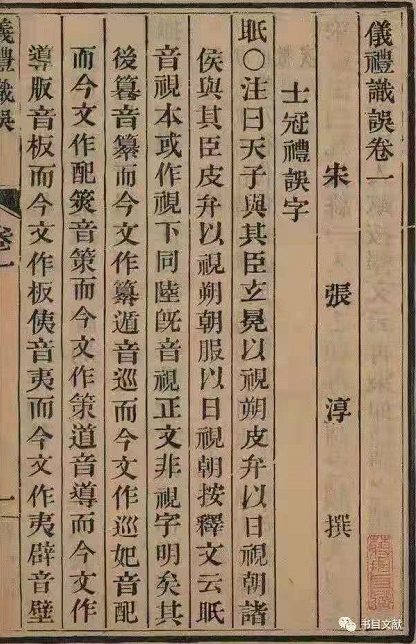 儀禮識誤卷一
宋 張 淳 撰
士冠禮誤字
眂○注曰天子與其臣玄冕以視朔皮弁以日視朝諸
侯與其臣皮弁以視朔朝服以日視朝按釋文云眂
音視本或作視下同陸旣音視正文非視字明矣其
後篹音纂而今文作纂遁音巡而今文作巡妃音配
而今文作配筴音策而今文作策道音導而今文作
導版音板而今文作板侇音夷而今文作夷辟音壁
儀禮識誤
卷一
一
书目文献